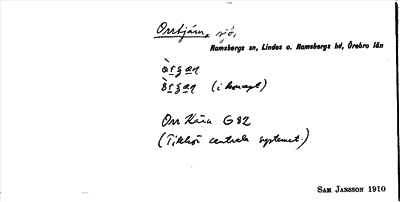 Orrtjärn, sjö,
Ramsbergs sn, Lindes o. Ramsbergs hd, Örebro län
(i koncept)
Orr Kärn G 82
(Tillhör centrala systemet.)
SAM JANSSON 1910